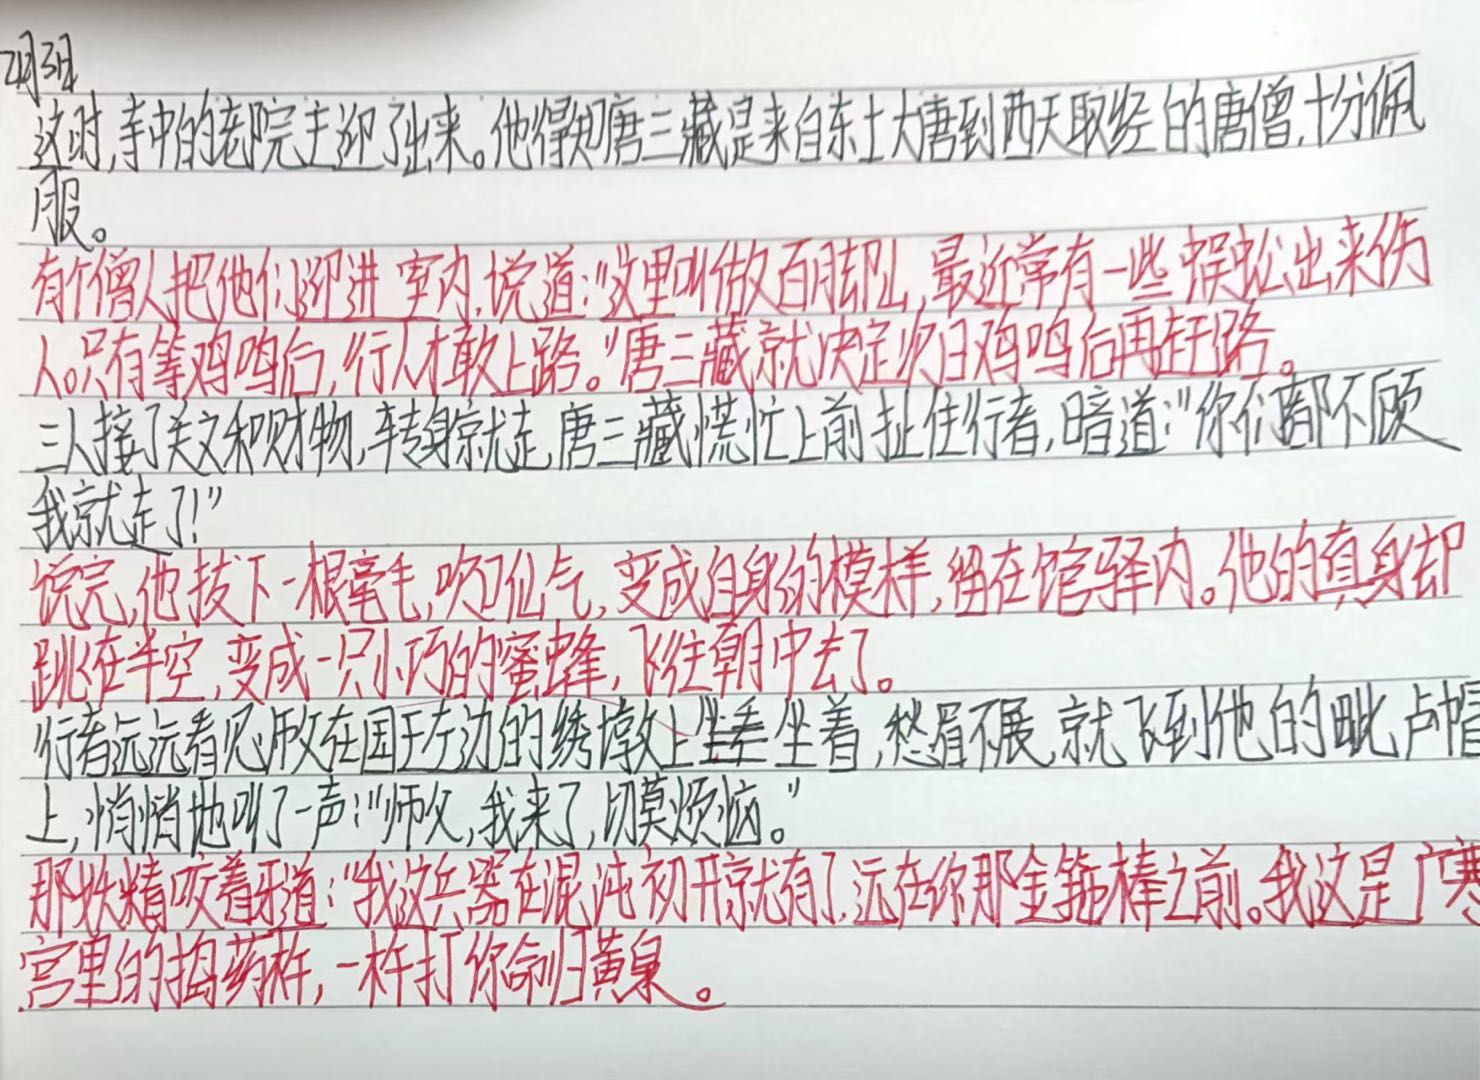 2月3日
这时,寺中的老院主迎了出来。他得知唐三藏是来自东土大唐到西天取经的唐僧,十分佩
服。
有个僧人把他们迎进室内,说道:"这里叫做百脚山,最近常有一些蜈蚣出来伤
人。只有等鸡鸣后,行人才敢上路。"唐三藏就决定次日鸡鸣后再赶路。
三人接了关文和财物,转身就走,唐三藏慌忙上前扯住行者,暗道:"你们都不顾
我就走了!"
说完,他拔下一根毫毛,吹口仙气,变成自身的模样,留在馆驿内。他的真身却
跳在半空,变成一只小巧的蜜蜂,飞往朝中去了。
行者远远看见师父在国王左边的绣墩上坐着,愁眉不展,就飞到他的毗卢帽
上,悄悄地叫了一声:"师父,我来了,切莫烦恼。"
那妖精咬着牙道:"我这兵器在混沌初开就有了,远在你那金箍棒之前。我这是广寒
宫里的捣药杵,一杵打你命归黄泉。